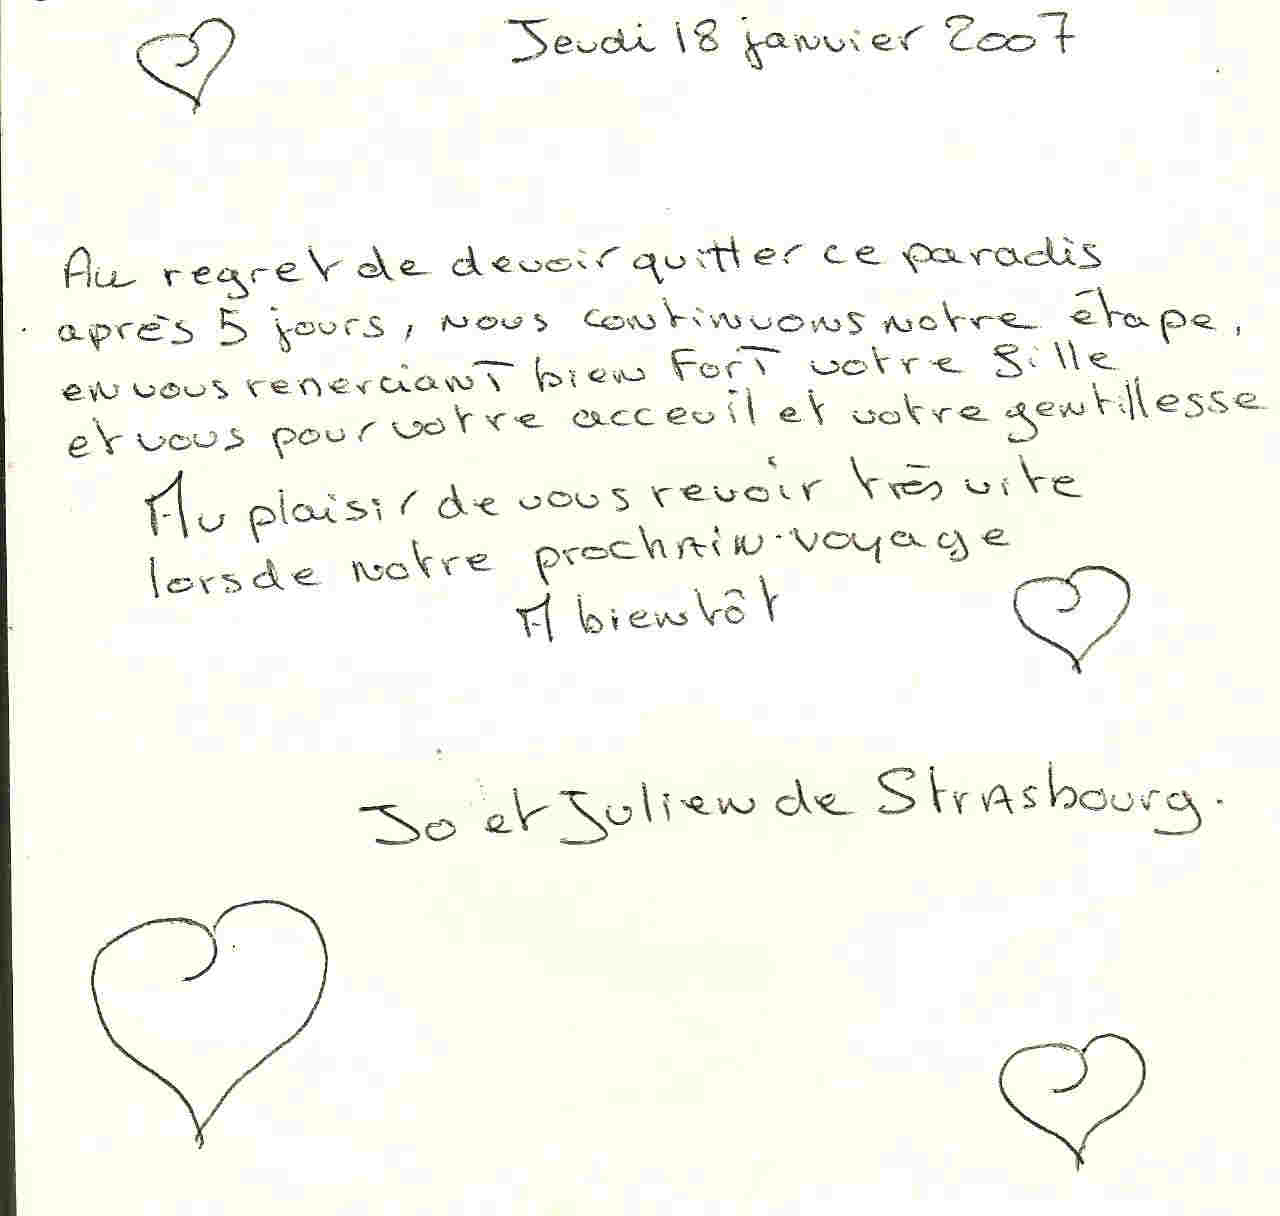 Jeudi 18 janvier 2007
Au regret de devoir quitter ce paradis
après 5 jours, nous continuons notre étape,
en vous renerciant bien Fort votre fille
et vous pour votre acceuil et votre gentillesse
Au plaisir de vous revoir très vite
lors de notre prochain voyage
A bientôt
Jo et Julien de Strasbourg.